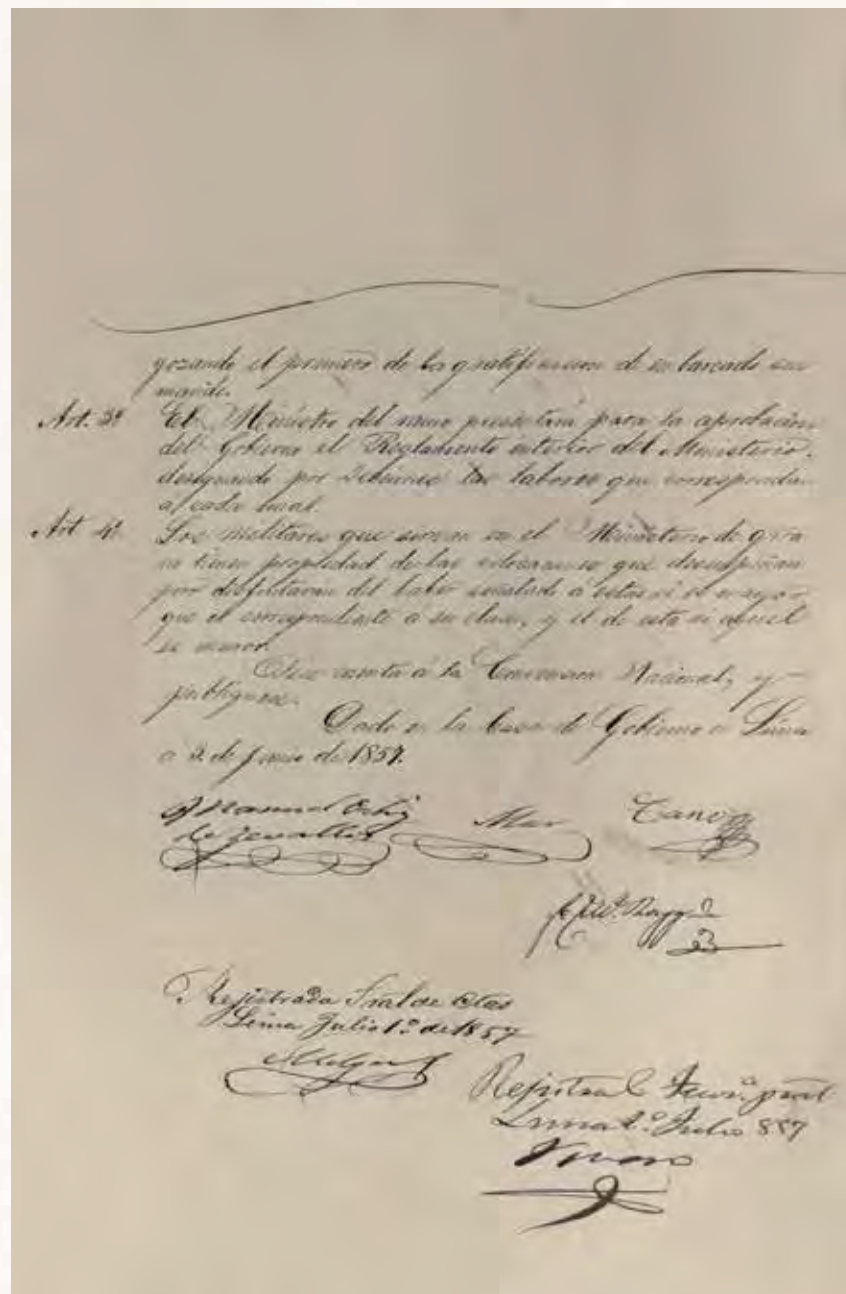 gozando el primero de la gratificacion de embarcado en
mando.
Art. 3º El Ministro del ramo presentará para la aprobacion
del Gobierno el Reglamento interior del Ministerio,
designando por Secciones las labores que correspondan
a cada cual.
Art. 4º Los militares que sirvan en el Ministerio de guerra
no tienen propiedad de las colocaciones que desempeñan
pero disfrutaran del haber señalado á estas si es mayor
que el correspondiente a su clase, y el de esta si aquel
es menor.
Dése cuenta á la Convencion Nacional, y
publíquese.
Dado en la Casa de Gobierno en Lima
a 2 de Junio de 1857.
Manuel Ortiz
de Zevallos Mar Cano
Rejistrada Tral de Ctas
Lima Julio 1º de 1857
Lima 1º Julio 857